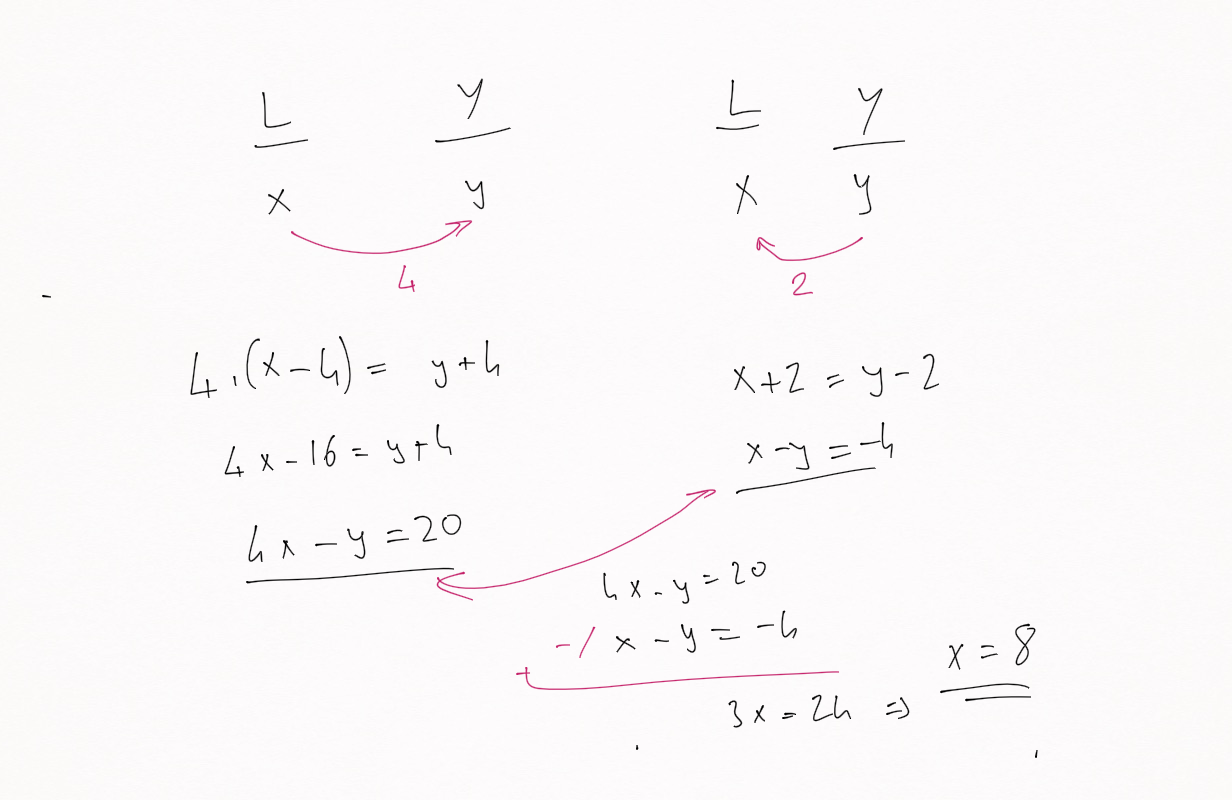 L Y
x y
4
4.(x-4) = y+4
4x-16 = y+4
4x - y = 20
L Y
x y
2
x+2 = y-2
x-y = -4
4x - y = 20
-/ x - y = -4
+
3x = 24 ⇒ x = 8